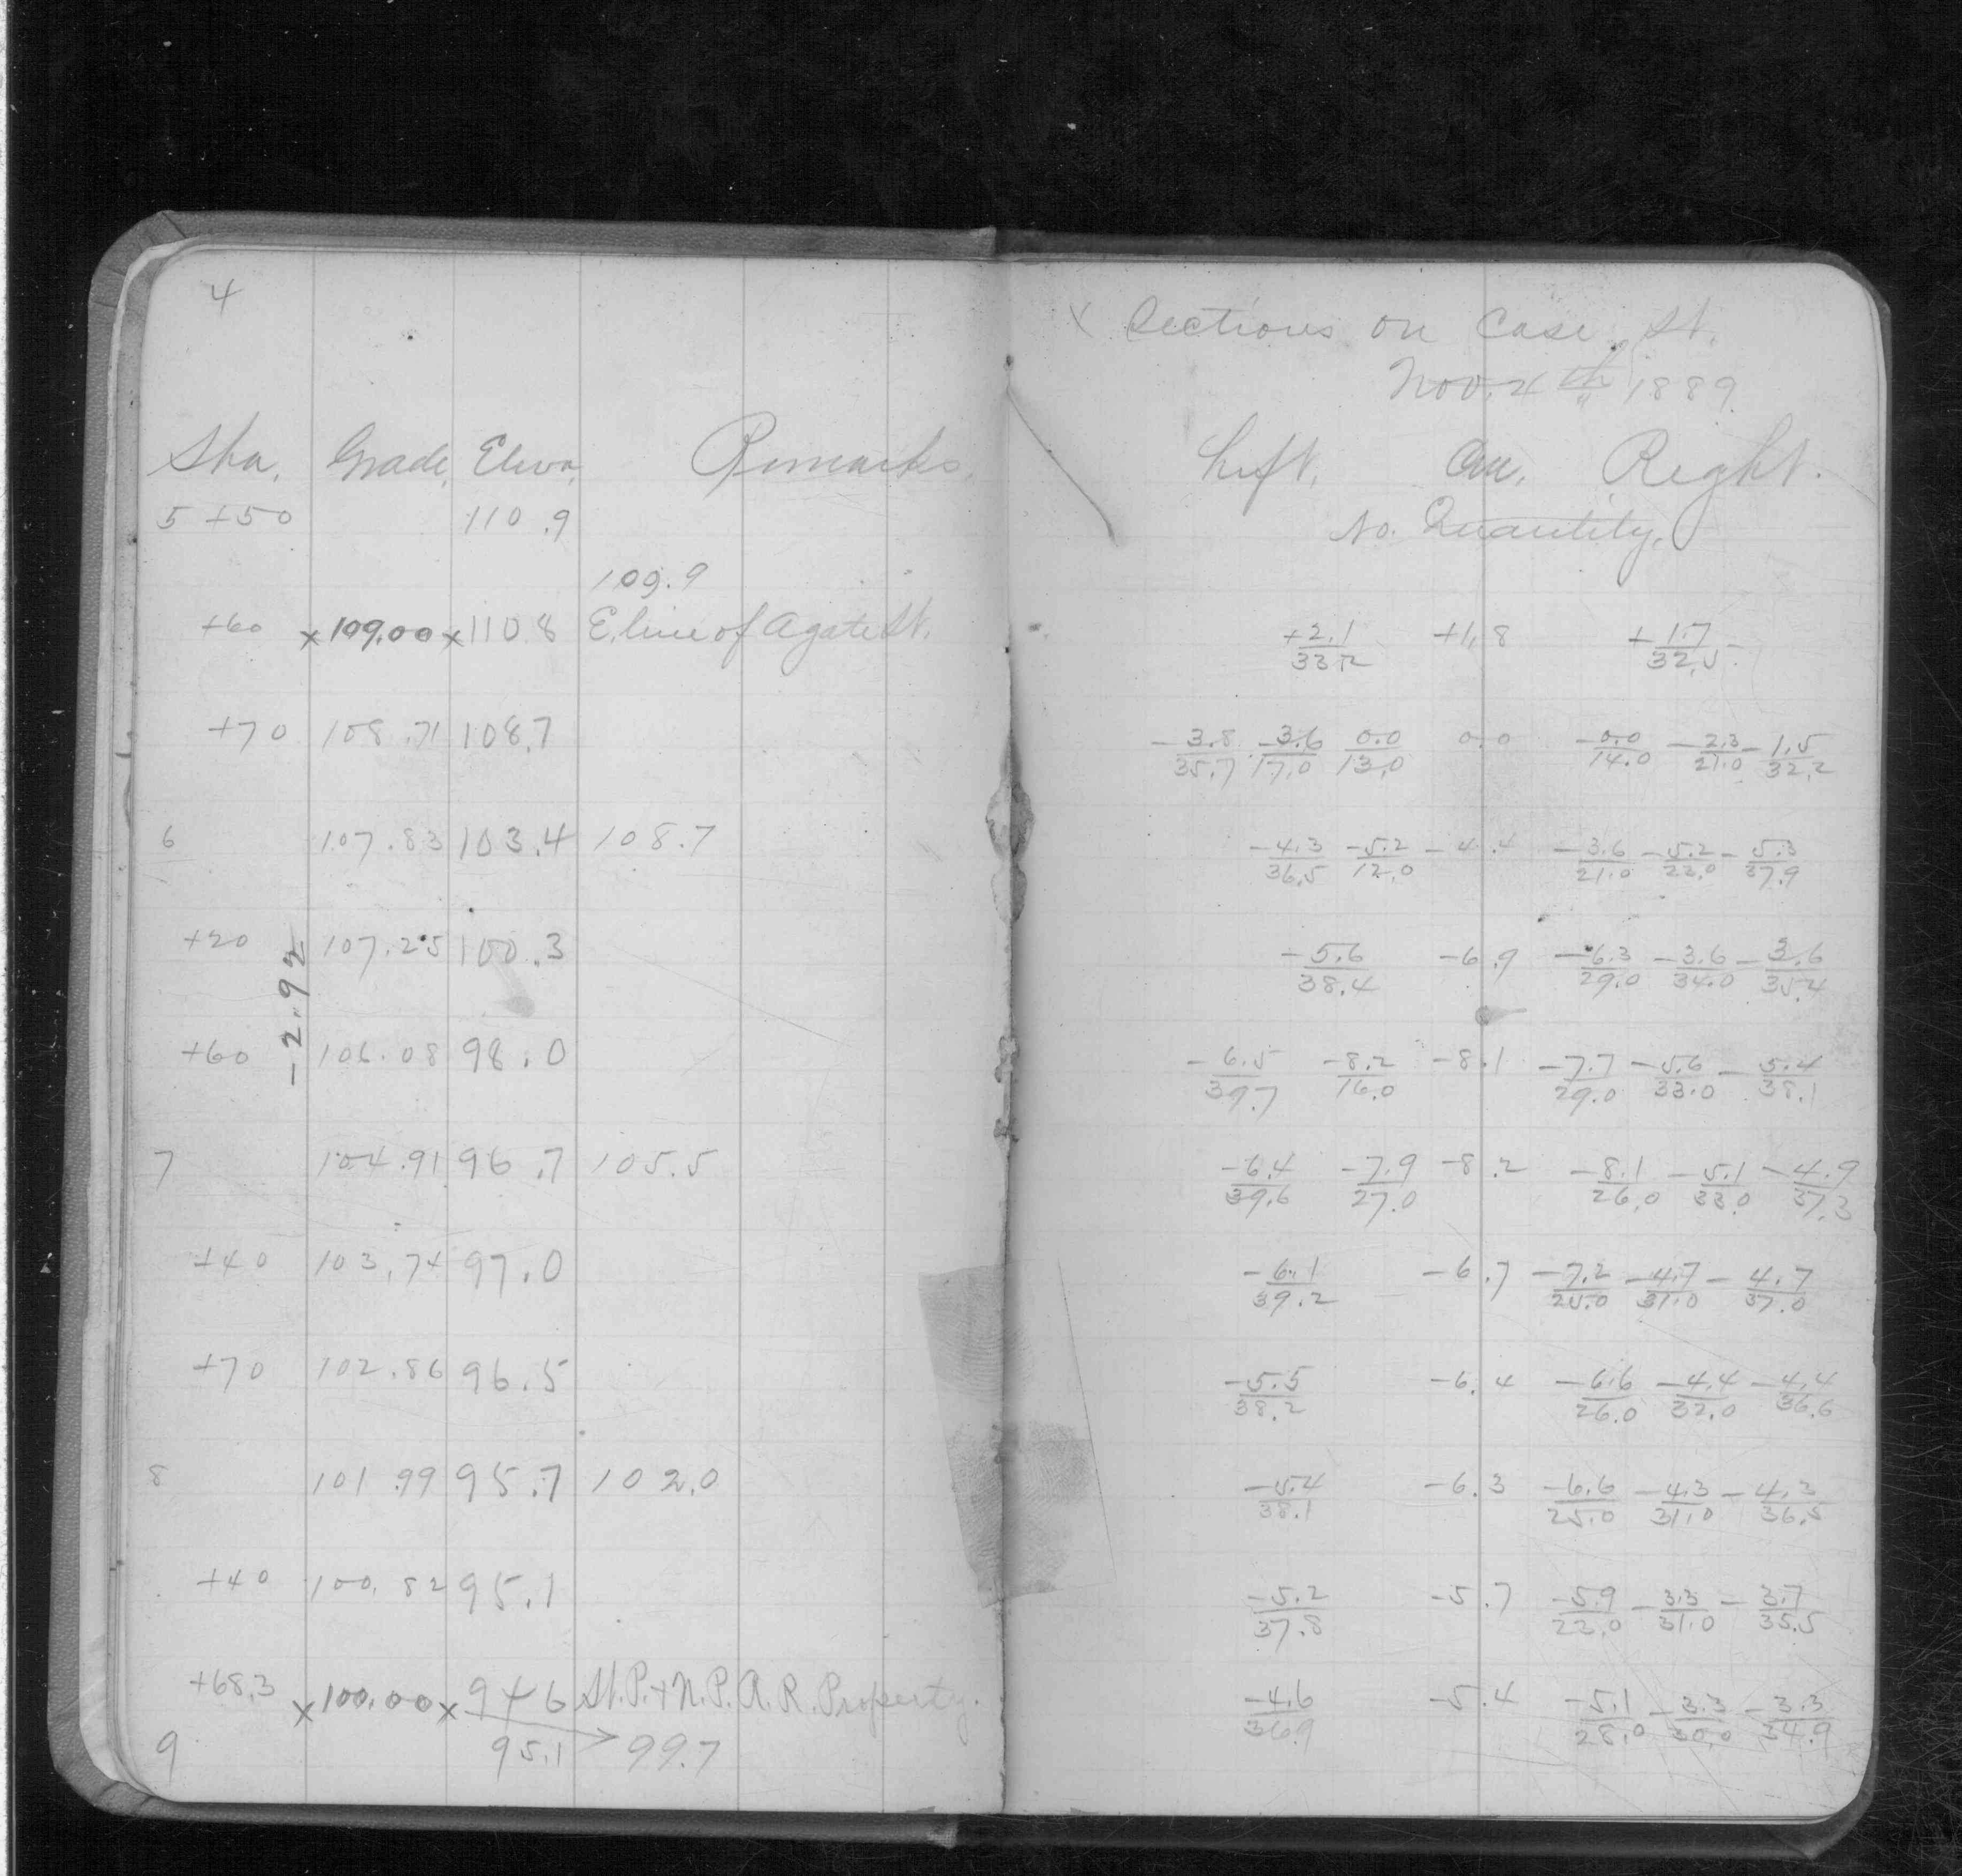 4
Sta. Grade, Eleva, Remarks.
5 +50 110.9
109.9
+60 x 109.00 x 110.8 E. line of Agate St.
+70 108.71 108.7
6 107.83 103.4 108.7
+20 107.25 100.3
-2.92
+60 106.08 98.0
7 104.91 96.7 105.5
+40 103.74 97.0
+70 102.86 96.5
8 101.99 95.7 102.0
+40 100.82 95.1
+68.3 x 100.00 x 94.6 St. P. + N. P. R. R. Property.
9 95.1 99.7
X Sections on Case St.
Nov. 4th 1889
Left. Cen. Right.
No. Quantity.
+2.1/33.2 +1.8 +1.7/32.5
-3.8/35.7 -3.6/17.0 0.0/13.0 0.0 -0.0/14.0 -2.3/21.0 -1.5/32.2
-4.3/36.5 -5.2/12.0 -4.4 -3.6/21.0 -5.2/22.0 -5.3/37.9
-5.6/38.4 -6.9 -6.3/29.0 -3.6/34.0 -3.6/35.4
-6.5/39.7 -8.2/16.0 -8.1 -7.7/29.0 -5.6/33.0 -5.4/38.1
-6.4/39.6 -7.9/27.0 -8.2 -8.1/26.0 -5.1/33.0 -4.9/37.3
-6.1/39.2 -6.7 -7.2/25.0 -4.7/31.0 -4.7/37.0
-5.5/38.2 -6.4 -6.6/26.0 -4.4/32.0 -4.4/36.6
-5.4/38.1 -6.3 -6.6/25.0 -4.3/31.0 -4.3/36.5
-5.2/37.8 -5.7 -5.9/22.0 -3.3/31.0 -3.7/35.5
-4.6/36.9 -5.4 -5.1/28.0 -3.3/30.0 -3.3/34.9